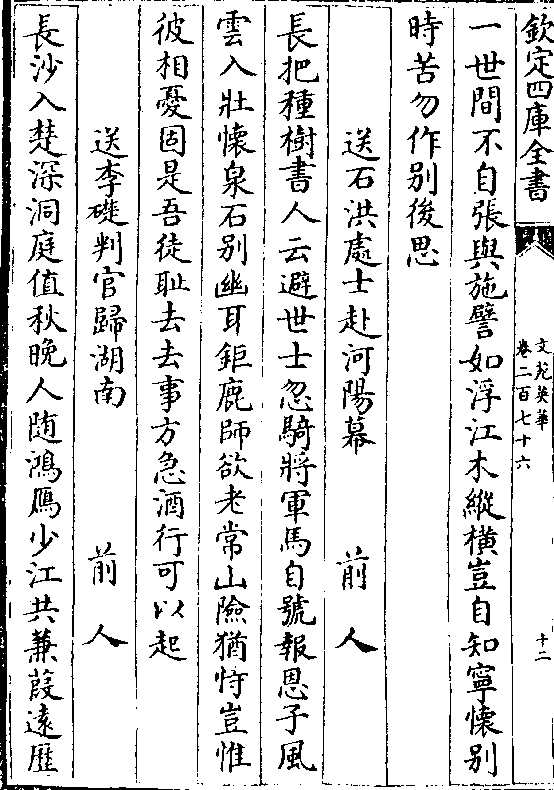 欽定四庫全書
文苑英華
卷二百七十六
十二
一世間不自張與施譬如浮江木縱橫豈自知寧懷别
時苦勿作别後思
送石洪處士赴河陽幕 前人
長把種樹書人云避世士忽騎將軍馬自號報恩子風
雲入壯懷泉石别幽耳鉅鹿師欲老常山險猶恃豈惟
彼相憂固是吾徒恥去去事方急酒行可以起
送李礎判官歸湖南 前人
長沙入楚深洞庭值秋晚人随鴻鴈少江共蒹葭逺歴